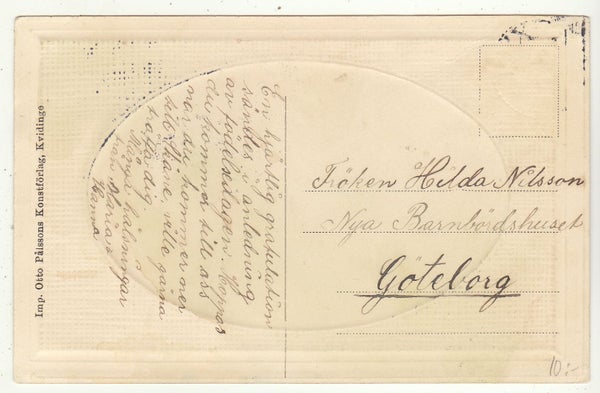 Imp. Otto Pålssons Konstförlag, Kvidinge
En hjärtlig gratulation
sändes i anledning
av födelsedagen. Hoppas
du kommer till oss
när du kommer ner
till Skåne, ville gärna
träffa dig.
Många hälsningar
från Maria
Hanna
Fröken Hilda Nilsson
Nya Barnbördshuset
Göteborg
10:-